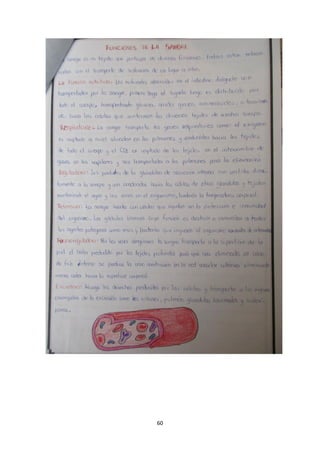 FUNCIONES DE LA SANGRE
La sangre es un tejido que participa de diversas funciones. Todas estas relacio-
nadas con el transporte de sustancias de un lugar a otro.
La Función nutritiva: Los nutrientes absorbidos en el intestino delgado son
transportados por la sangre, primero llega al hígado luego es distribuido por
todo el cuerpo, transportando glucosa, ácidos grasos, aminoácidos,
de todas las células que conforman los diversos tejidos de nuestro cuerpo.
Respiratoria: La sangre transporta los gases respiratorios como el oxígeno
es captado a nivel alveolar en los pulmones y conducidos hacia los tejidos
de todo el cuerpo y el CO2 es captado de los tejidos en el intercambio de
gases en los capilares y son transportados a los pulmones para la eliminación
Reguladora: Los productos de la glándulas de secreción interna son vertidos directa-
mente a la sangre y son conducidos hacia las células de otras glándulas y tejidos
manteniendo el agua y las sales en el organismo, también la temperatura corporal.
Defensiva: La sangre cuenta con células que ayudan en la protección e inmunidad
del organismo. Los glóbulos blancos cuya función es destruir y protegerlos a todos
los agentes patógenos como virus y bacterias que invaden el organismo causantes de enfermedades
Termorreguladora: Por las vasos sanguíneos la sangre transporta a la superficie de la
piel el calor producido por los tejidos profundos para que sea eliminado, en caso
de frío intenso se produce la vaso constricción en la red vascular cutánea eliminando
menos calor hacia la superficie corporal.
Excretora: Recoge los desechos producidos por las células y transporta a los órganos
encargados de la excreción como los riñones, pulmones, glándulas lacrimales y sudorí-
paras.
60